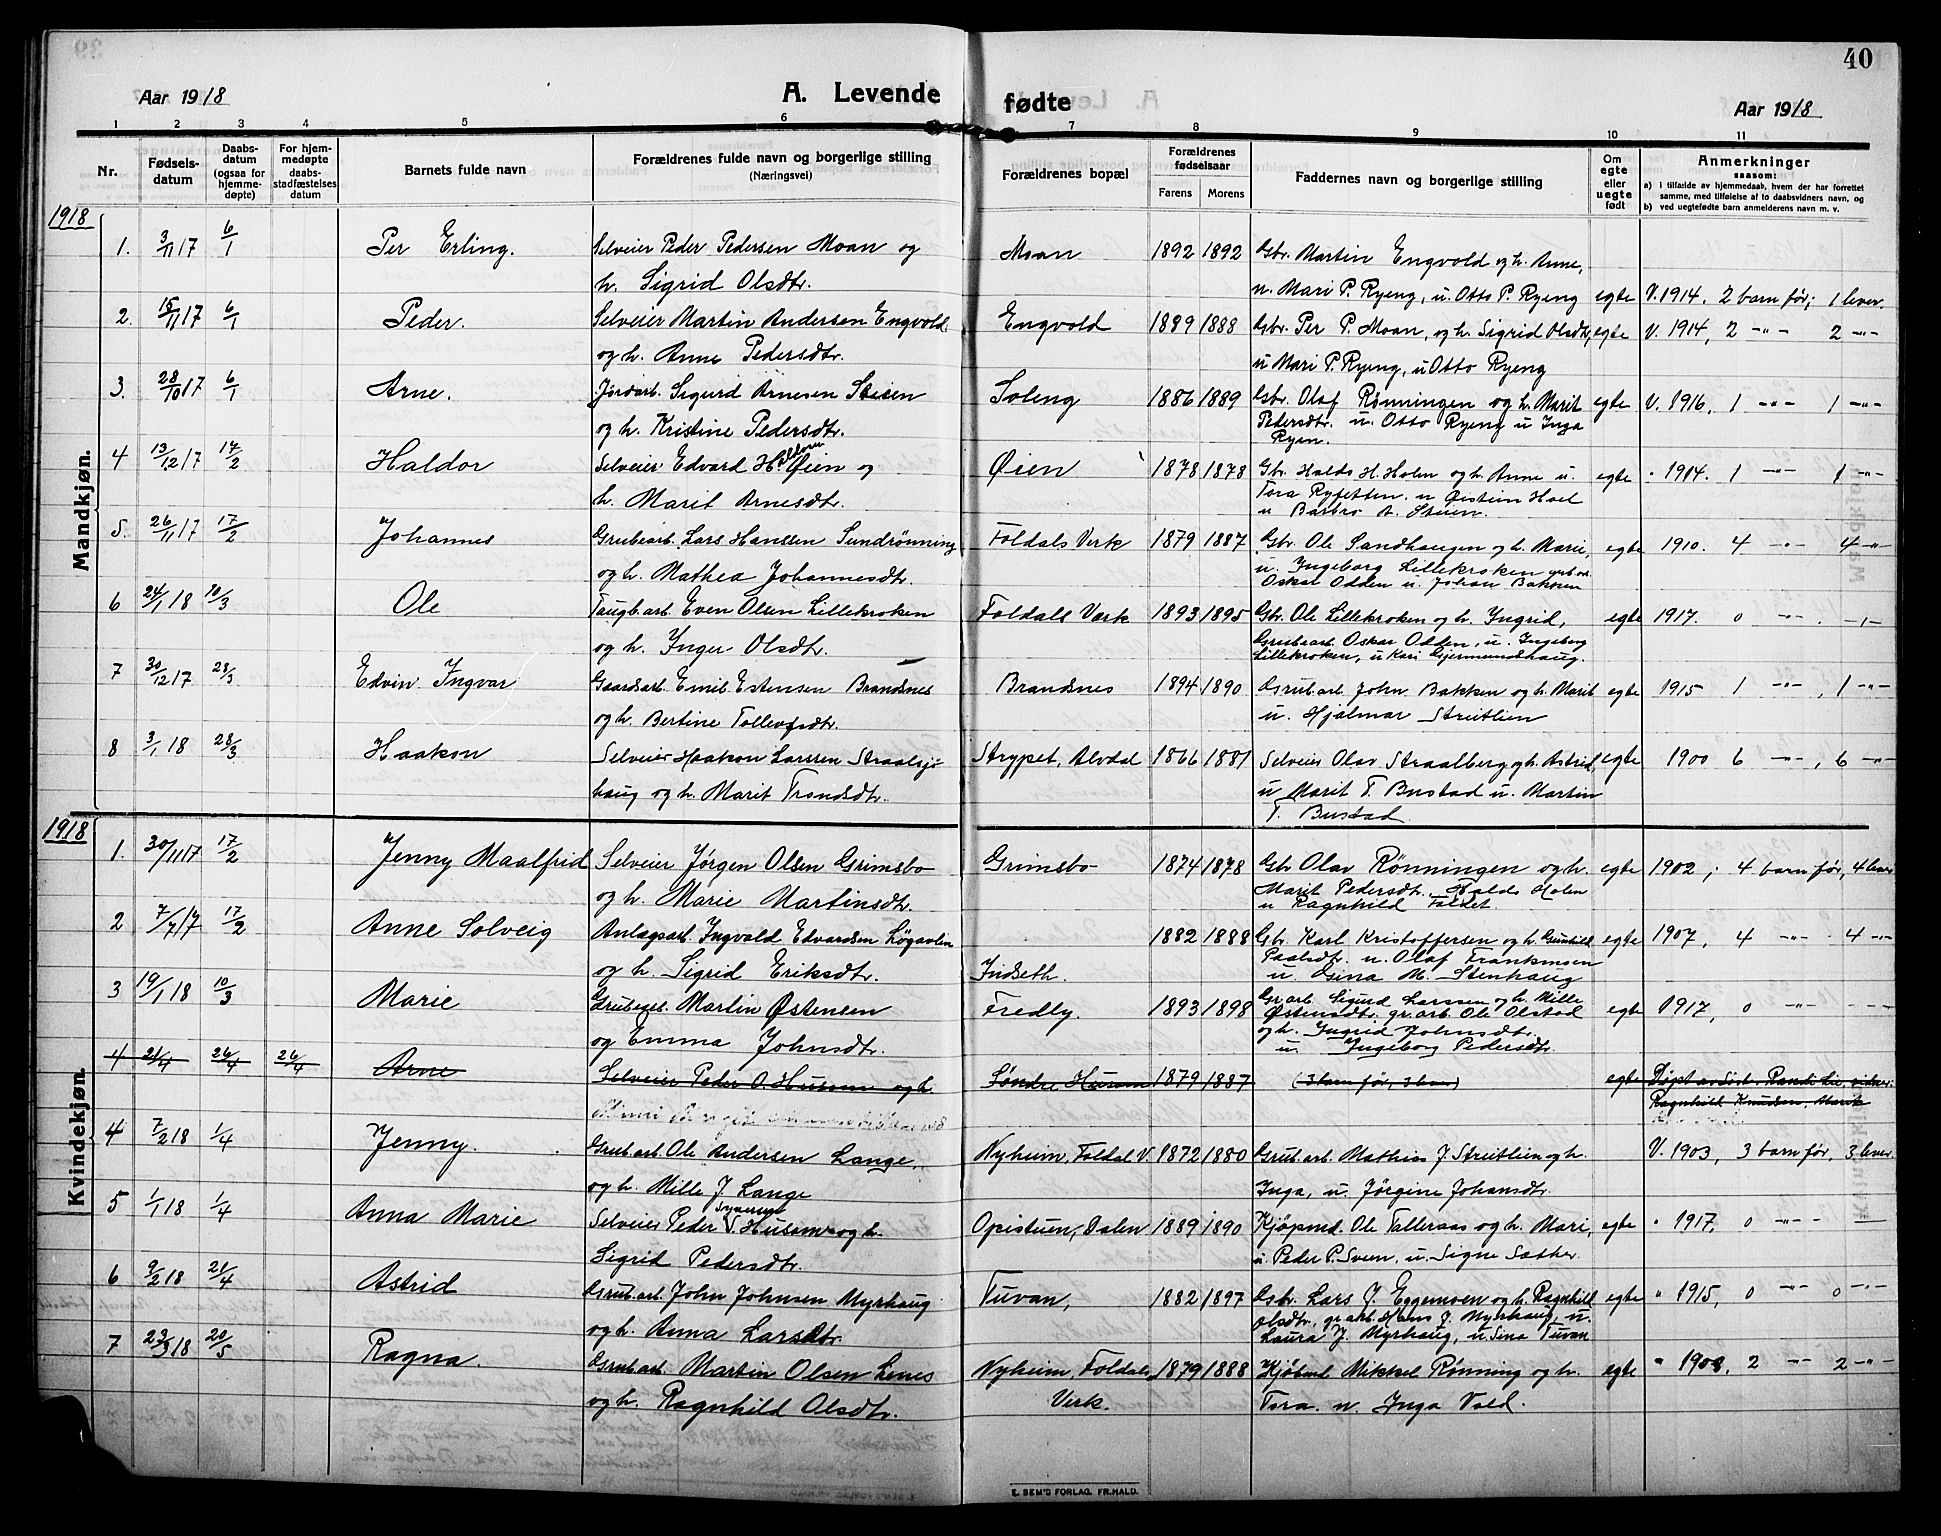 40
Aar 1918
A. Levende fødte
Aar 1918
1 2 3 4 5 6 7 8 9 10 11
Nr.
Fødsels-
datum
Daabs-
datum
(ogsaa for
hjemme-
døpte)
For hjem-
medøpte
daabs-
stadfæstelses
datum
Barnets fulde navn
Forældrenes fulde navn og borgerlige stilling
(Næringsvei)
Forældrenes bopæl
Forældrenes
fødselsaar
Farens Morens
Faddernes navn og borgerlige stilling
Om
egte
eller
uegte
født
Anmerkninger
saasom:
a) i tilfælde av hjemmedaab, hvem der har forrettet
samme, med tilføielse af to daabsvidners navn, og
b) ved uegtefødte barn anmelderens navn m. v.
1918
Mandkjøn.
1. 3/11 17 6/1 Per Erling. Selveier Peder Pedersen Moan og Moan 1892 1892 Gbr. Martin Engvold og h. Anne,
h. Sigrid Olsdtr. u. Mari P. Ryeng, u. Otto P. Ryeng egte V. 1914, 2 barn før; 1 lever.
2. 15/11 17 6/1 Peder. Selveier Martin Andersen Engvold Engvold 1889 1888 Gbr. Per P. Moan, og h. Sigrid Olsdtr, egte V. 1914, 2 -"- 2 -"-
og h. Anne Pedersdtr. u Mari P. Ryeng, u Otto Ryeng
3. 28/10 17 6/1 Arne. Jordarb. Sigurd Arnesen Steien Soleng 1886 1889 Gbr. Olaf Rønningen og h. Marit egte V. 1916, 1 -"- 1 -"-
og h. Kristine Pedersdtr. Pedersdtr. u. Otto Ryeng u Inga
Ryen.
4 13/12 17 17/2 Haldor Selveier Edvard H. Øien og Øien 1878 1878 Gbr. Haldo H. Holen og h. Anne u. egte " 1914. 1 -"- 1 -"-
h. Marit Arnesdtr. Tora u Øistein Hoel
u Barbro A. Steien.
5. 26/11 17 17/2 Johannes Grubearb. Lars Hanssen Sundrønning Foldals Verk 1879 1887 Gbr. Ole Sandhaugen og h. Marie, egte 1910. 4 " 4 -"-
og h. Mathea Johannesdtr. u. Ingeborg Lillekroken
Oskar Odden u. Johan Bakken
6 24/1 18 10/3 Ole Taugb.arb. Even Olsen Lillekroken Foldals Verk 1893 1895 Gbr. Ole Lillekroken og h. Ingrid, egte 1917. 0 -"- -"-
og h. Inger Olsdtr. Grubearb. Oskar Odden, u. Ingeborg
Lillekroken, u Kari Gjermundshaug.
7 30/12 17 28/3 Edvin Ingvar Gaardsarb. Emil Estensen Brandsnes Brandsnes 1894 1890 Grub.arb. John Bakken og h. Marit egte 1915 1 -"-, 1 -"-
og h. Bertine Tollevsdtr. u. Hjalmar Streitlien
8 3/1 18 28/3 Haakon Selveier Haakon Larssen Straalsjø Strypet, Alvdal 1866 1881 Selveier Olav Straalberg og h. Astrid, egte 1900 6 -"-, 6 -"-
haug og h. Marit Trondsdtr. u Marit T. Bustad u. Martin
T. Bustad.
1918
Kvindekjøn.
1. 30/11 17 17/2 Jenny Maalfrid Selveier Jørgen Olsen Grimsbo Grimsbo 1874 1878 Gbr Olav Rønningen og h. egte 1902; 4 barn før, 4 lever
og h. Marie Martinsdtr. Marit Pedersdtr. Haldo Holen
u Ragnhild Foldet.
2 7/7 17 17/2 Anne Solveig Anlægsarb. Ingvald Edvardsen Løgavlen 1882 1888 Gbr. Karl Kristoffersen og h. Gunhild egte 1907, 4 -"- 4 -"-
og h. Sigrid Eriksdtr. Indseth. Paalsdtr. u. Olaf
u. Gina M. Stenhaug
3 19/1 18 10/3 Marie Grubearb. Martin Østensen Fredly. 1893 1898 Gr.arb. Sigurd Larssen og h. Mille egte 1917, 0 -"- ---
og Emma Johnsdtr. Østensdtr. gr.arb. Ole Olstad
og h. Ingrid Johnsdtr.
u. Ingeborg Pedersdtr.
4 21/4 26/4 26/4 Arne Selveier Peder O. Husom og h. Søndre Husom 1879 1887 (3 barn før, 3 lever) egte Døpt av Randi Lie,
Ragnhild Knudsen, Marit
4 7/2 18 1/4 Jenny. Grub.arb. Ole Andersen Lange, Nyheim, Foldal V. 1872 1880 Grub.arb. Mathias J. Streitlien og h. V. 1903, 3 barn før, 3 lever
og h. Mille J. Lange Inga, u. Jørgine Johansdtr.
5 1/1 18 1/4 Anna Marie Selveier Peder S. Husom og h. Opistuen, Dalen 1889 1890 Kjøpmd. Ole Talleraas og h. Mari, egte " 1917, 0 -"- —
Sigrid Pedersdtr. u. Peder P. Sveen, u. Signe Sæther.
6 9/2 18 21/4 Astrid Grub.arb. John Johnsen Myrhaug Tuvan, 1882 1897 Gbr. Lars J Eggemoen og h. Ragnhild egte " 1915, 0 -"- 0 -"-
og h. Anna Larsdtr. Olsdtr, gr.arb. Hans J. Myrhaug, u.
Laura J. Myrhaug, u. Sina Tuvan
7 23/3 18 20/5 Ragna. Grub.arb. Martin Olsen Lenes Nyheim, Foldals 1879 1888 Kjøbmd Mikkel Rønning og h. egte " 1908, 2 -"- 2 -"-
og h. Ragnhild Olsdtr. Verk. Tora. u. Inga Vold.
E. SEM'S FORLAG. FR.HALD.